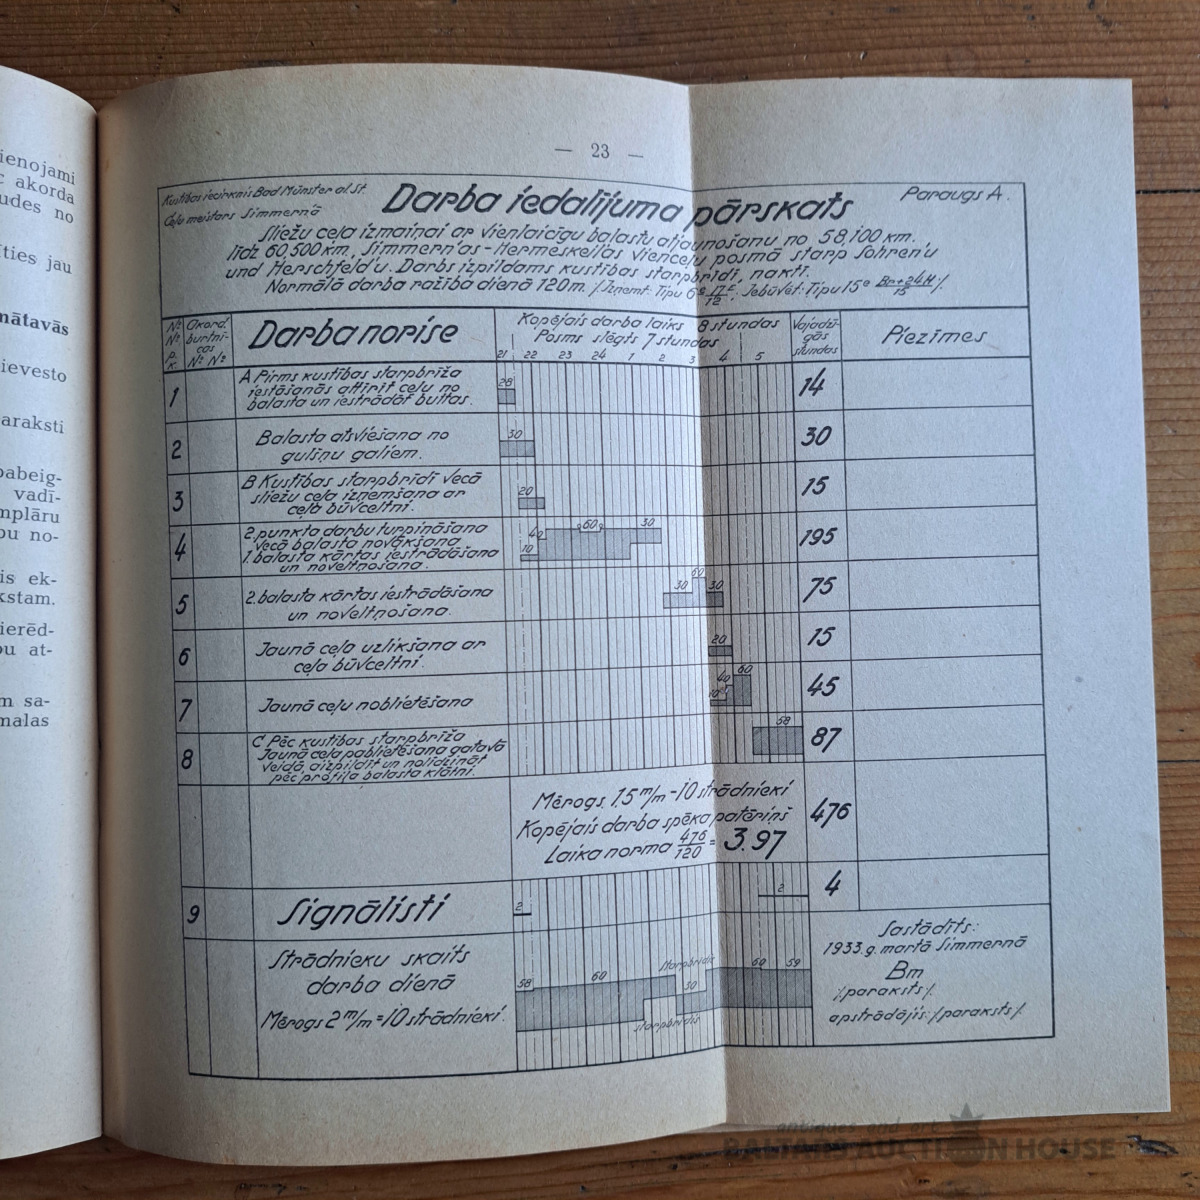 ienojami
akorda
udes no
ties jau
mātavās
ievesto
araksti
pabeig-
vadī-
mplāru
pu no-
is ek-
kstam.
ierēd-
pu at-
m sa-
malas
— 23 —
Kustības iecirknis Bad Münster al St.
Ceļu meistars Simmernā
Darba iedalījuma pārskats
Paraugs A.
Sliežu ceļa izmaiņai ar vienlaicīgu balastu atjaunošanu no 58,100 km.
līdz 60,500 km, Simmern'as-Hermeskeilas vienceļu posmā starp Sohren'u
und Herschfeld'u. Darbs izpildams kustības starpbrīdī, naktī.
Normālā darba ražība dienā 120 m. /Izņemt: Tipu 6e 17E/12; Jebūvēt: Tipu 15e Br+24H/15/.
№ № p. k.
Akord. burtnī- cas № №
Darba norise
Kopējais darba laiks 8 stundas
Posms slēgts 7 stundas
21 22 23 24 1 2 3 4 5
Vajadzī- gās stundas
Piezīmes
1
A Pirms kustības starpbrīža
iestāšanās attīrīt ceļu no
balasta un iestrādāt buttas.
28
14
2
Balasta atsviešana no
gulšņu galiem.
30
30
3
B Kustības starpbrīdī vecā
sliežu ceļa izņemšana ar
ceļa būvceltni.
20
15
4
2. punkta darbu turpināšana
vecā balasta novākšana
1. balasta kārtas iestrādāšana
un noveltņošana.
10 40 60 30
195
5
2. balasta kārtas iestrādāšana
un noveltņošana.
30 60 30
75
6
Jaunā ceļa uzlikšana ar
ceļa būvceltni.
20
15
7
Jaunā ceļu noblietēšana
10 40 60
45
8
C Pēc kustības starpbrīža
Jaunā ceļa pablietēšana gatavā
veidā, aizpildīt un nolīdzināt
pēc profila balasta klātni.
58
87
Mērogs 1.5 m/m - 10 strādnieki
Kopējais darba spēka patēriņš
Laika norma 476/120 = 3.97
476
9
Signālisti
2 2
4
Strādnieku skaits
darba dienā
Mērogs 2 m/m = 10 strādnieki.
58 60 starpbrīdis 30 60 59
starpbrīdis
Sastādīts:
1933.g. martā Simmernā
Bm
/paraksts/.
apstrādājis: /paraksts/.
antiques and art
BALTIJAS AUCTION HOUSE